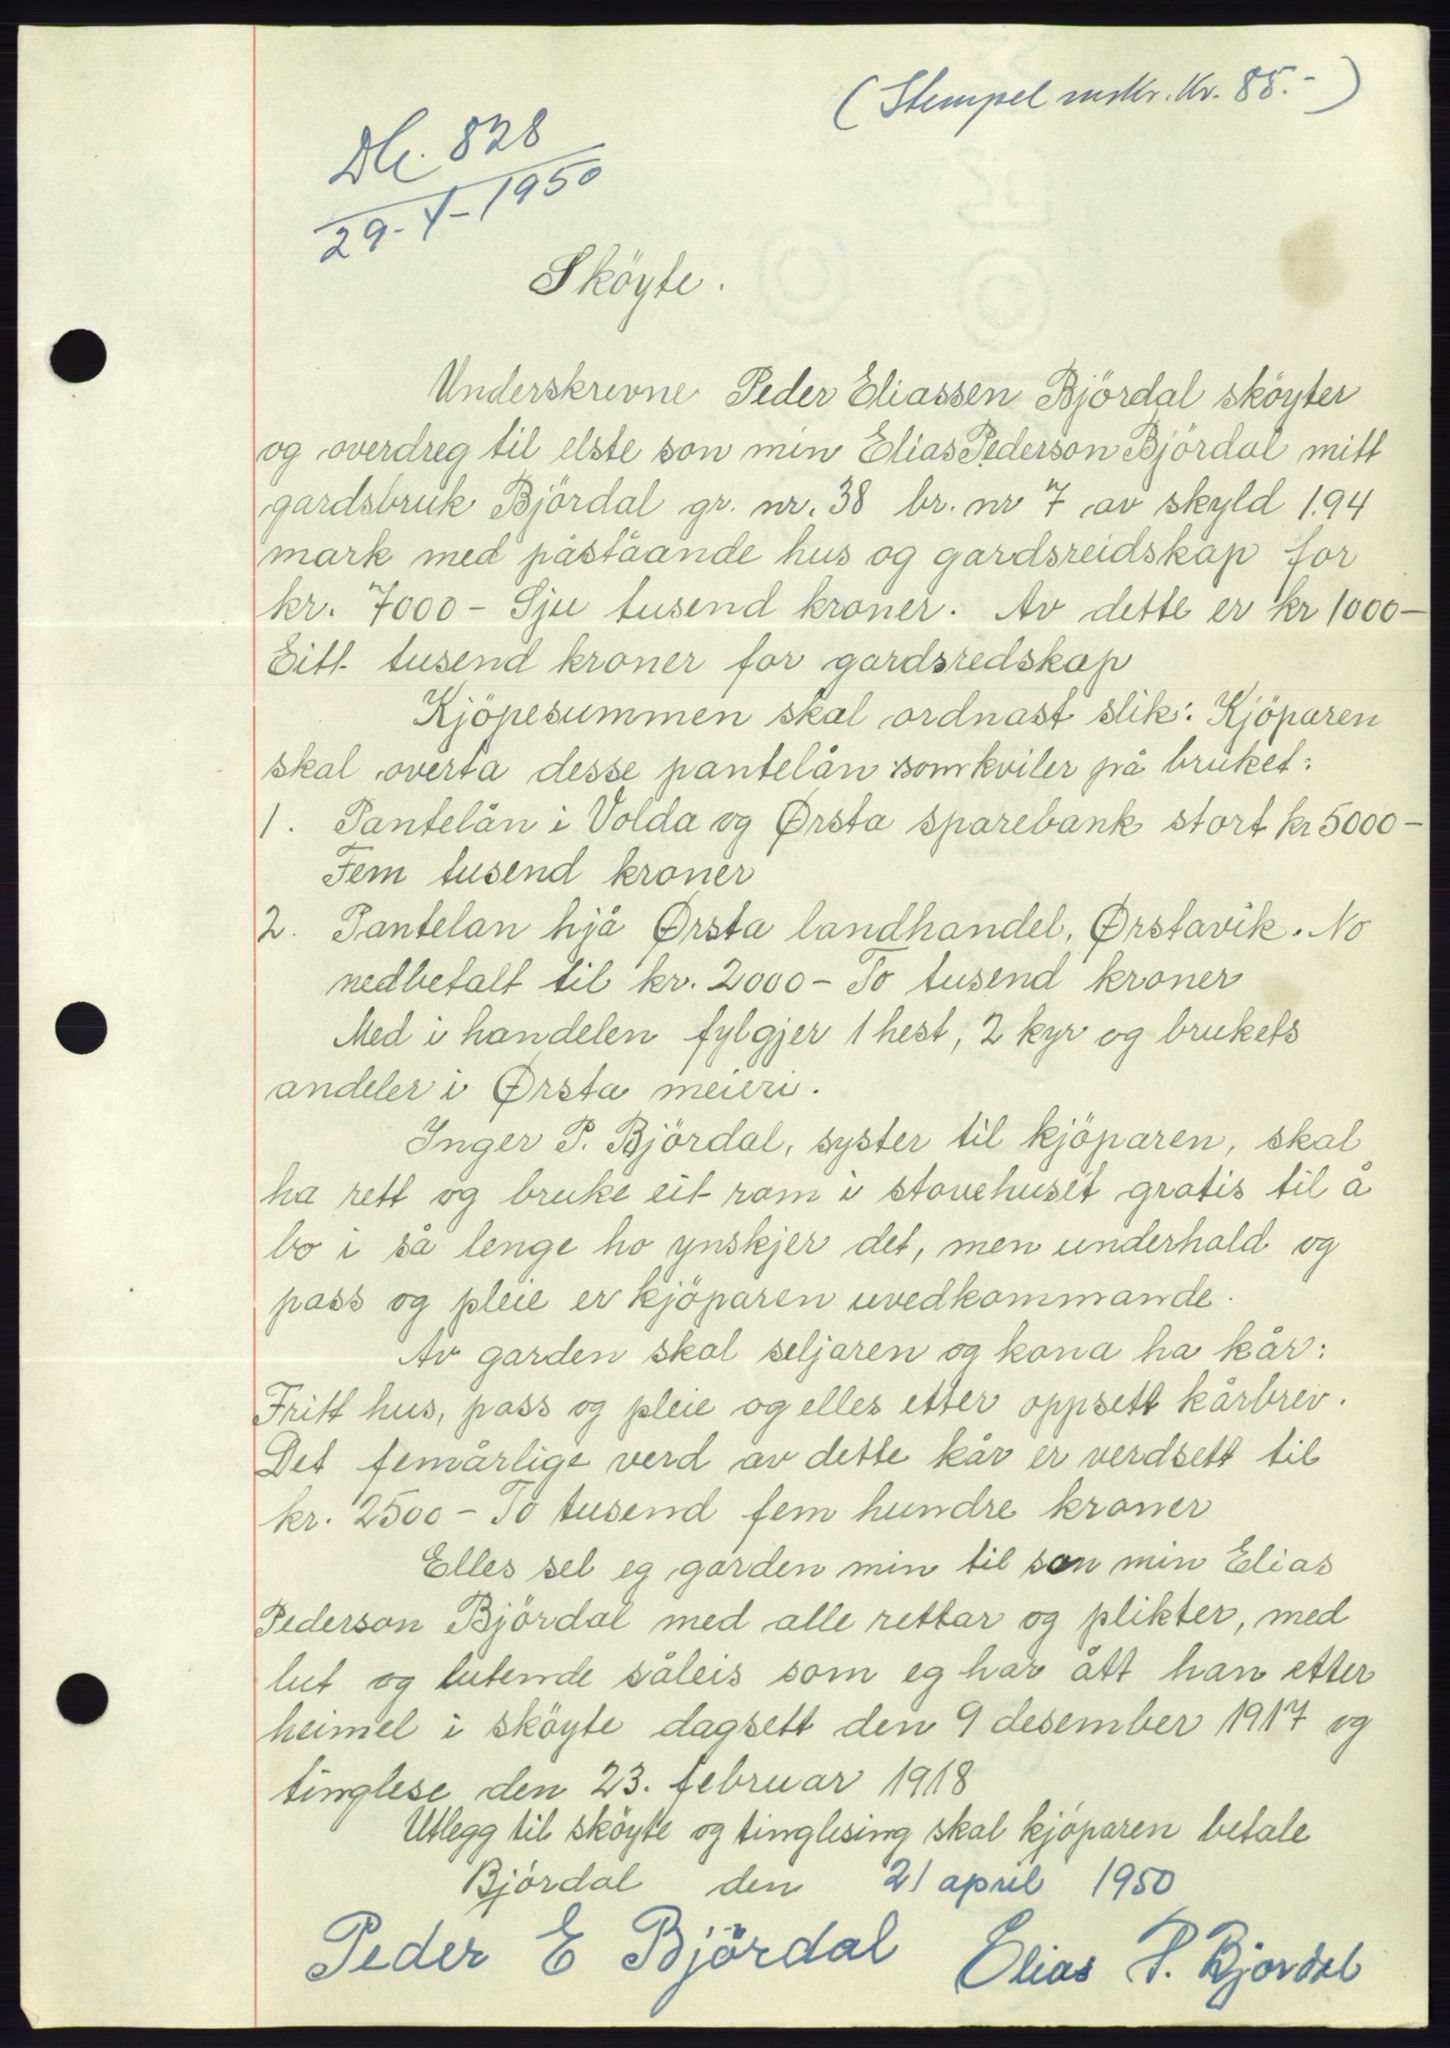 (Stempel mrkr. Kr. 85.-)
Db. 828
29-V-1950
Sköyte.
Underskrevne Peder Eliassen Björdal sköyter
og overdreg til elste son min Elias Pederson Björdal mitt
gardsbruk Björdal gr. nr. 38 br. nr 7 av skyld 1.94
mark med påståande hus og gardsreidskap for
kr. 7000- Sju tusend kroner. Av dette er kr 1000-
Eitt tusend kroner for gardsredskap
Kjöpesummen skal ordnast slik: Kjöparen
skal overta desse pantelån som kviler på bruket:
1. Pantelån i Volda og Ørsta sparebank stort kr 5000-
Fem tusend kroner
2. Pantelan hjå Ørsta landhandel, Ørstavik. No
nedbetalt til kr. 2000- To tusend kroner
Med i handelen fylgjer 1 hest, 2 kyr og brukets
andeler i Ørsta meieri.
Inger P. Björdal, syster til kjöparen, skal
ha rett og bruke eit rom i stovehuset gratis til å
bo i så lenge ho ynskjer det, men underhold og
pass og pleie er kjöparen uvedkommande.
Av garden skal seljaren og kona ha kår:
Fritt hus, pass og pleie og elles etter oppsett kårbrev.
Det femårlige verd av dette kår er verdsett til
kr. 2500- To tusend fem hundre kroner
Elles sel eg garden min til son min Elias
Pederson Björdal med alle rettar og plikter, med
lut og lutende såleis som eg har ått han etter
heimel i sköyte dagsett den 9 desember 1917 og
tinglese den 23. februar 1918
Utlegg til sköyte og tinglesing skal kjöparen betale
Björdal den 21 april 1950
Peder E Björdal Elias P. Bjordal